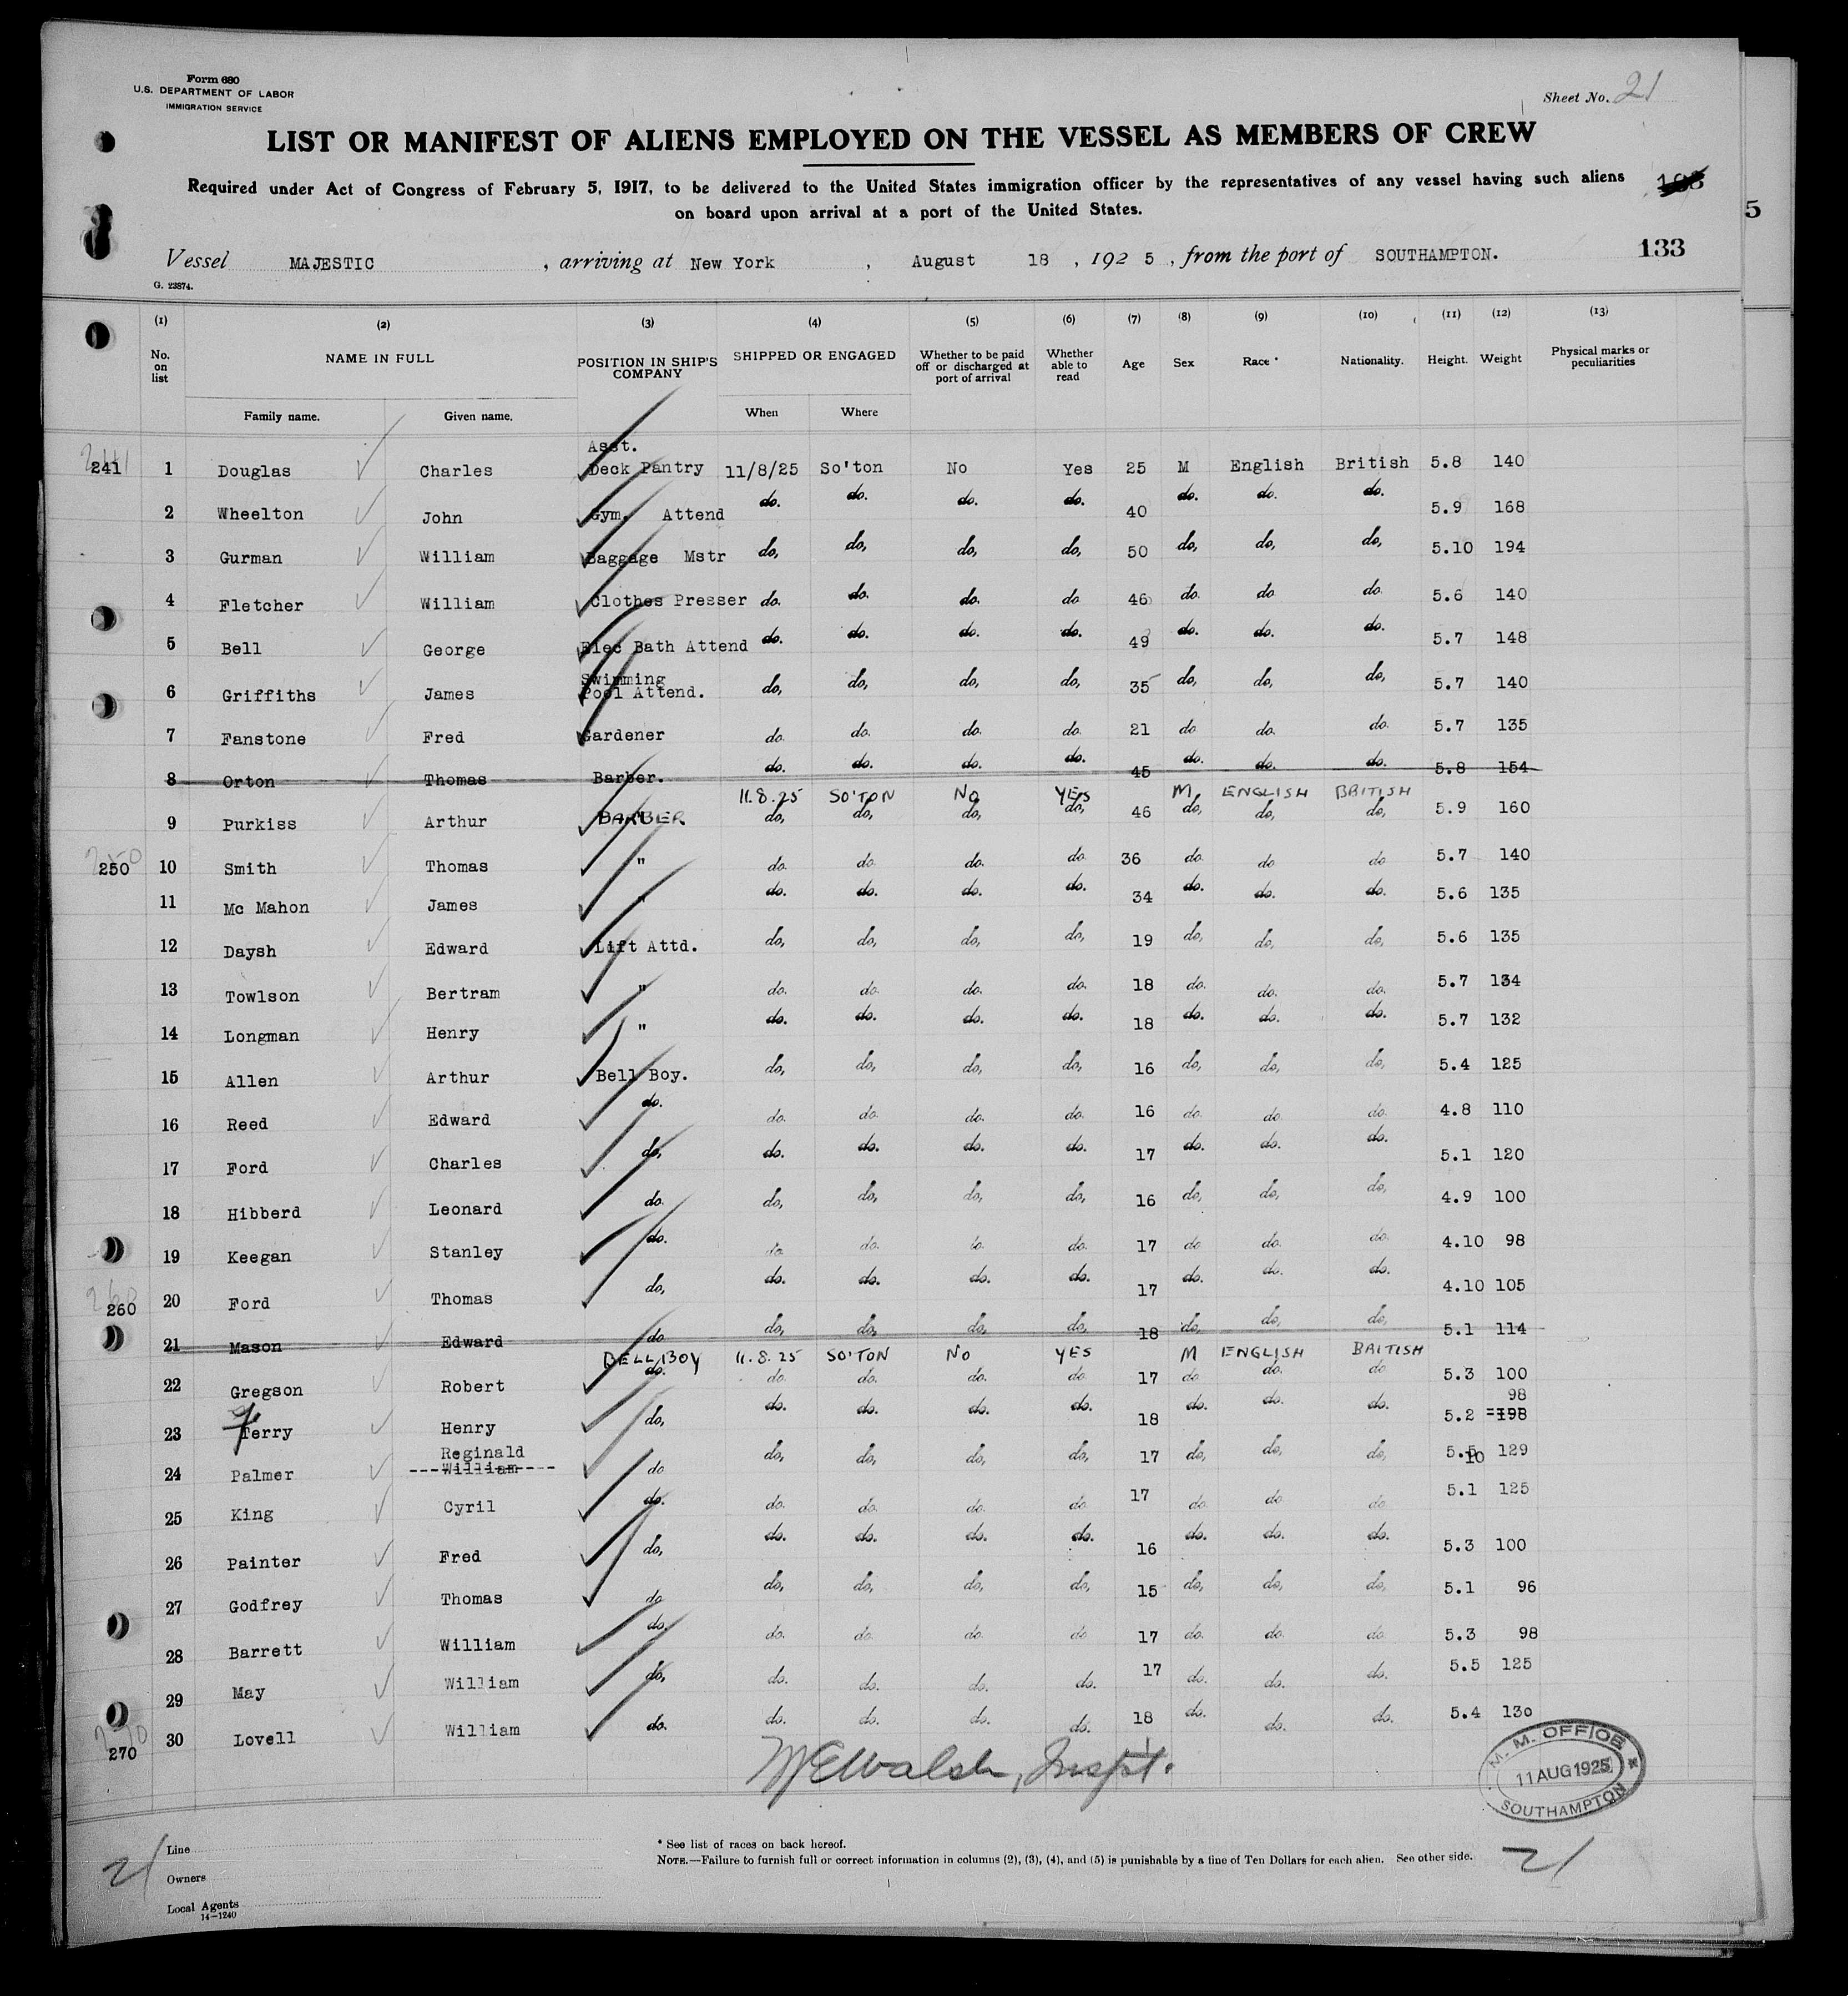 Form 680
U.S. DEPARTMENT OF LABOR
IMMIGRATION SERVICE
Sheet No. 21
LIST OR MANIFEST OF ALIENS EMPLOYED ON THE VESSEL AS MEMBERS OF CREW
Required under Act of Congress of February 5, 1917, to be delivered to the United States immigration officer by the representatives of any vessel having such aliens
on board upon arrival at a port of the United States.
5
133
Vessel MAJESTIC , arriving at New York , August 18 , 192 5 , from the port of SOUTHAMPTON.
G. 23874.
(1) (2) (3) (4) (5) (6) (7) (8) (9) (10) (11) (12) (13)
No. on list NAME IN FULL POSITION IN SHIP'S COMPANY SHIPPED OR ENGAGED Whether to be paid off or discharged at port of arrival Whether able to read Age Sex Race * Nationality. Height. Weight Physical marks or peculiarities
Family name. Given name. When Where
241 241 1 Douglas Charles Asst. Deck Pantry 11/8/25 So'ton No Yes 25 M English British 5.8 140
2 Wheelton John Gym. Attend do. do. do. do. 40 do. do. do. 5.9 168
3 Gurman William Baggage Mstr do, do, do, do, 50 do, do, do, 5.10 194
4 Fletcher William Clothes Presser do. do. do. do 46 do. do do. 5.6 140
5 Bell George Elec Bath Attend do. do. do. do. 49 do. do. do. 5.7 148
6 Griffiths James Swimming Pool Attend. do, do, do, do, 35 do, do, do, 5.7 140
7 Fanstone Fred Gardener do. do. do. do. 21 do do. do. 5.7 135
8 Orton Thomas Barber. do. do. do. do. 45 do. do. do. 5.8 154
11.8.25 SO'TON NO YES M ENGLISH BRITISH
9 Purkiss Arthur BARBER do, do, do, do, 46 do, do, do, 5.9 160
250 250 10 Smith Thomas " do. do. do. do 36 do. do do 5.7 140
11 Mc Mahon James " do. do. do. do. 34 do. do. do. 5.6 135
12 Daysh Edward Lift Attd. do, do, do, do, 19 do, do, do, 5.6 135
13 Towlson Bertram " do. do. do. do. 18 do. do. do. 5.7 134
14 Longman Henry " do. do. do. do. 18 do. do. do. 5.7 132
15 Allen Arthur Bell Boy. do, do, do, do, 16 do, do, do, 5.4 125
16 Reed Edward do. do. do. do. do. 16 do. do. do. 4.8 110
17 Ford Charles do, do. do. do. do. 17 do. do. do. 5.1 120
18 Hibberd Leonard do. do, do, do, do, 16 do, do, do, 4.9 100
19 Keegan Stanley do. do. do. do. do. 17 do do. do. 4.10 98
260 260 20 Ford Thomas do, do. do. do. do. 17 do. do. do. 4.10 105
21 Mason Edward do do, do, do, do, 18 do, do, do, 5.1 114
BELL BOY 11.8.25 SO'TON NO YES M ENGLISH BRITISH
22 Gregson Robert do. do. do. do. do 17 do. do. do 5.3 100
23 Terry Henry do, do. do. do. do. 18 do. do. do. 5.2 198 98
24 Palmer William Reginald do do, do, do, do, 17 do, do, do, 5.5 10 129
25 King Cyril do. do. do. do. do. 17 do. do. do. 5.1 125
26 Painter Fred do, do. do. do. do. 16 do. do. do. 5.3 100
27 Godfrey Thomas do do, do, do, do, 15 do, do, do, 5.1 96
28 Barrett William do. do. do. do. do 17 do. do. do 5.3 98
29 May William do, do. do. do. do. 17 do. do. do. 5.5 125
270 270 30 Lovell William do. do. do. do. do. 18 do. do. do. 5.4 130
W E Walsh, Inspt.
M. M. OFFICE
11 AUG 1925
SOUTHAMPTON
21
21
Line
Owners
Local Agents
14—1240
* See list of races on back hereof.
NOTE.—Failure to furnish full or correct information in columns (2), (3), (4), and (5) is punishable by a fine of Ten Dollars for each alien. See other side.